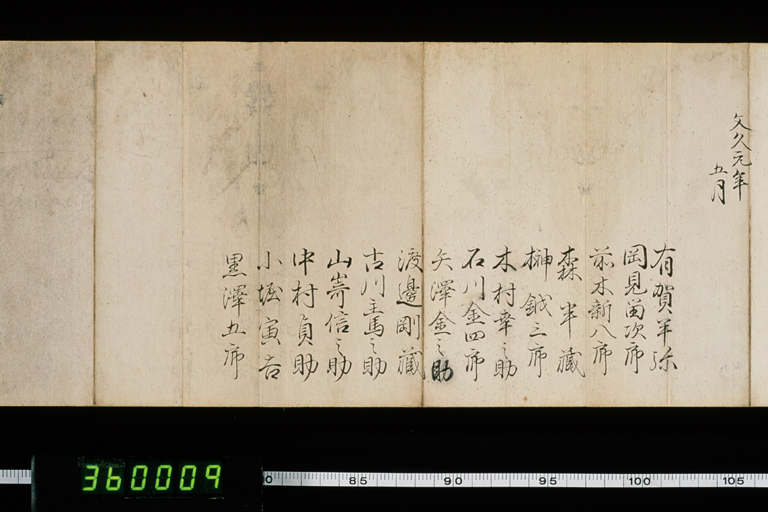 文久元年
五月
有賀半弥
岡見留次郎
前木新八郎
森半蔵
榊鉞三郎
木村幸之助
石川金四郎
矢澤金之助
渡邊剛蔵
古川主馬之助
山嵜信之助
中村貞助
小堀寅吉
黒澤五郎
360009
0 85 90 95 100 105